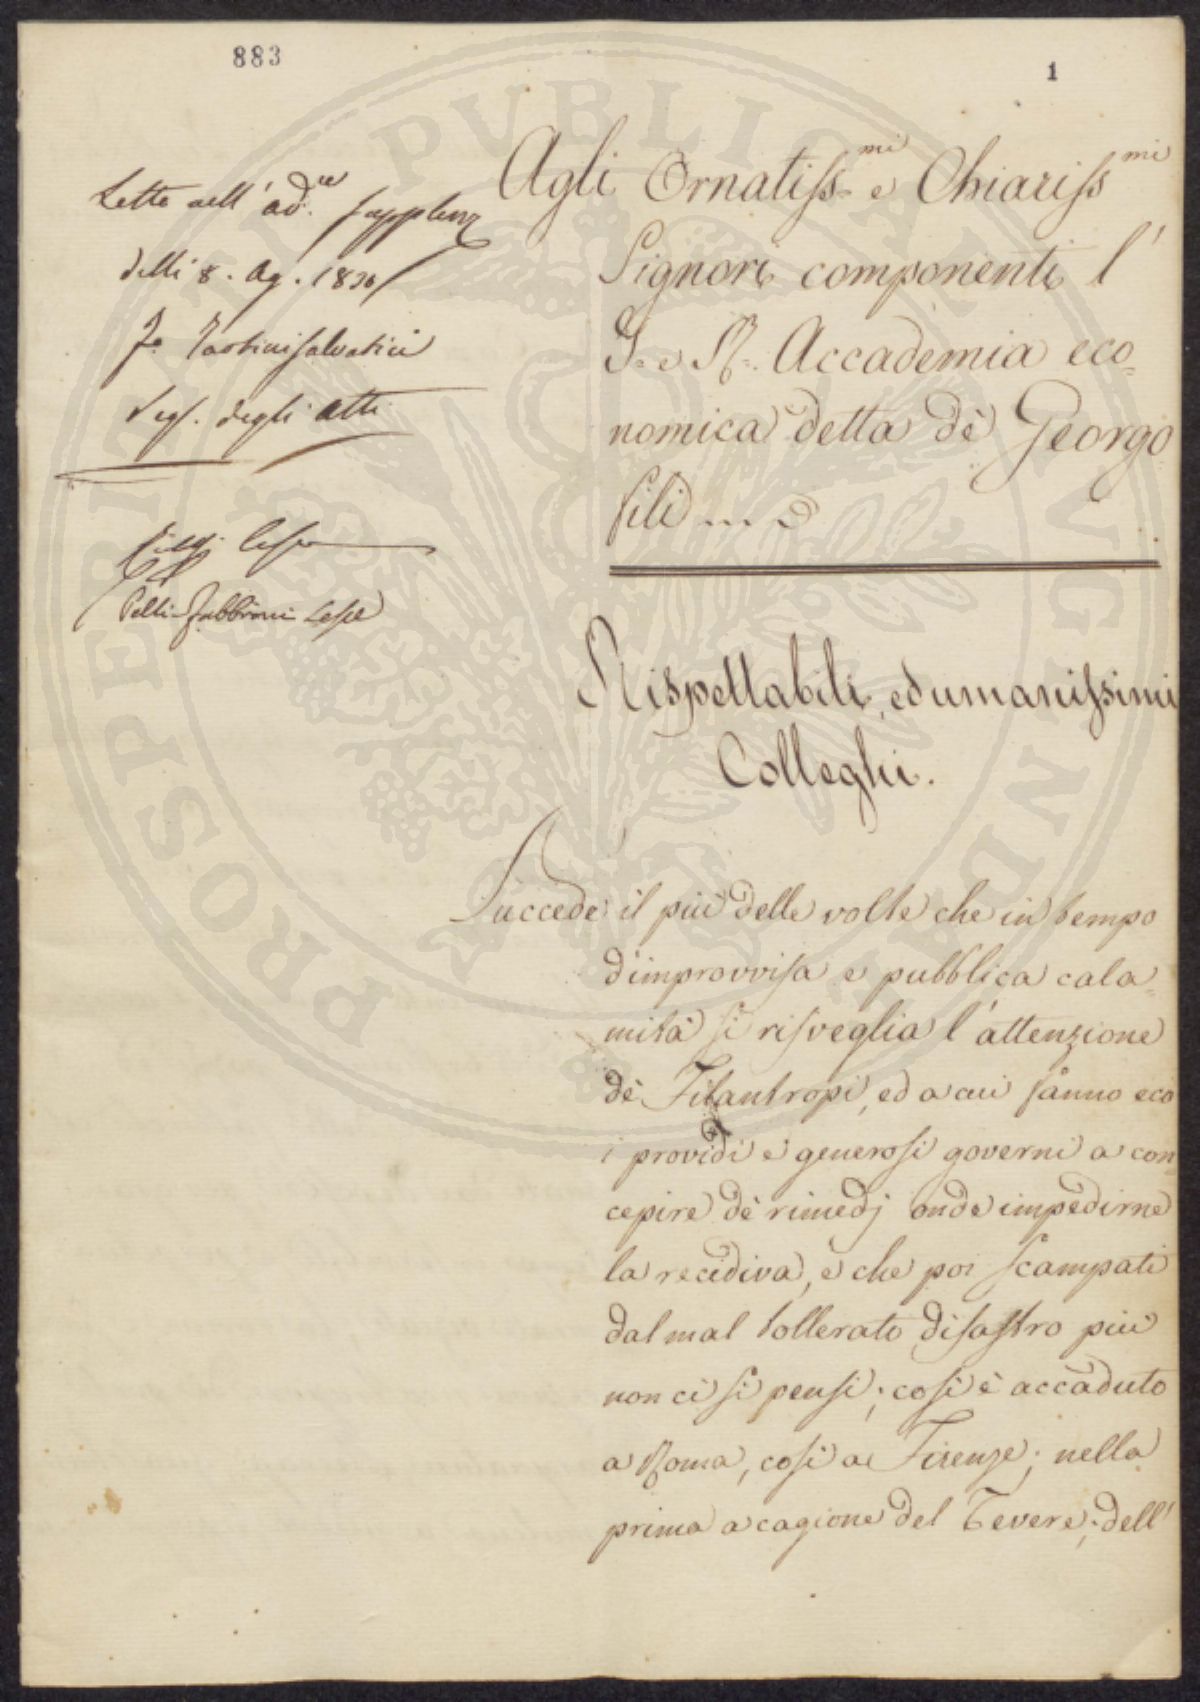 883
1
Letta nell' ad.za
delli 8. Ag. 1830
Segr. degli atti
Pelli-Fabbroni
Agli Ornatiss.mi e Chiariss.mi
Signori componenti l'
I. e R. Accademia eco=
nomica detta de' Georgo
fili
Rispettabili, ed umanissimi
Colleghi.
Succede il più delle volte che in tempo
d'improvvisa e pubblica cala=
mità si risveglia l'attenzione
dè Filantropi, ed a cui fanno eco
i providi e generosi governi a con=
cepire dè rimedj onde impedirne
la recidiva, e che poi scampati
dal mal tollerato disastro più
non ci si pensi; così è accaduto
a Roma, così a Firenze; nella
prima a cagione del Tevere; dell'
PROSPERITATI PUBLICAE AUGENDAE